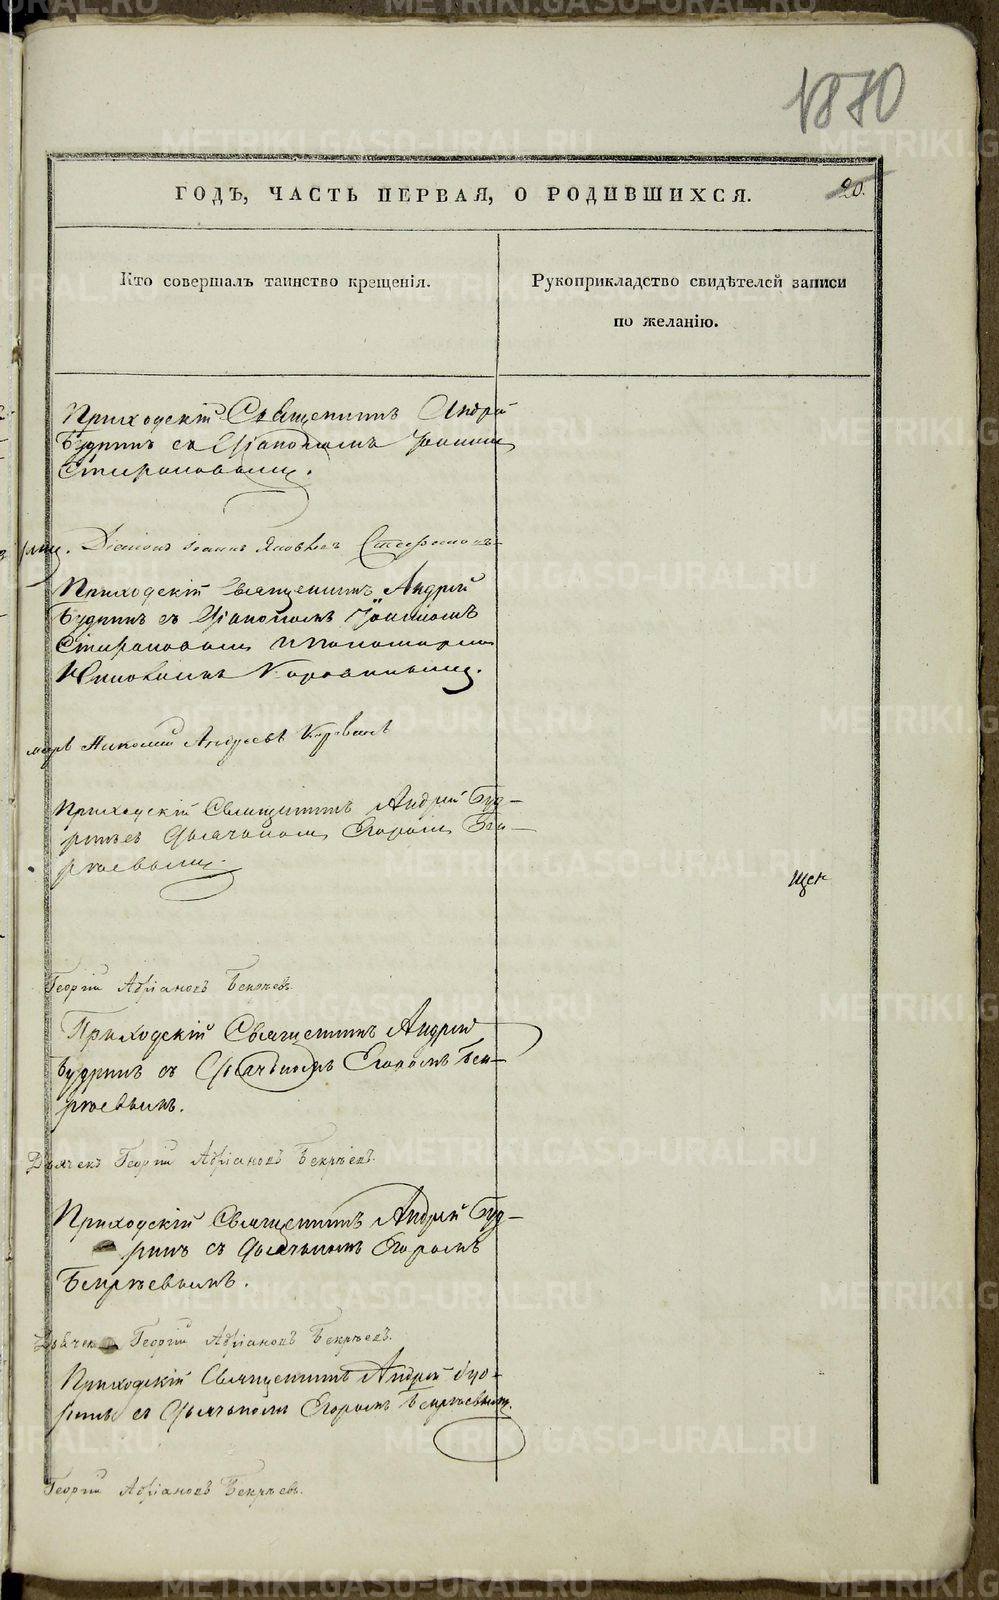 1870
20.
ГОДЪ, ЧАСТЬ ПЕРВАЯ, О РОДИВШИХСЯ.
Кто совершалъ таинство крещенія.
Рукоприкладство свидѣтелей записи
по желанію.
Приходскій Священникъ Андрей
Будринъ съ Діакономъ Іоанномъ
Стефановымъ.
Діаконъ Іоаннъ Яковлевъ Стефановъ
Приходскій Священникъ Андрей
Будринъ съ Діакономъ Іоанномъ
Стефановымъ и пономаремъ
Николаемъ Коровинымъ.
Николай Андреевъ Коровинъ
Приходскій Священникъ Андрей Буд-
ринъ съ Дьячкомъ Егоромъ Бек-
рѣевымъ.
Георгій Адріановъ Бекрѣевъ.
Приходскій Священникъ Андрей
Будринъ съ Дьячкомъ Егоромъ Бек-
рѣевымъ.
Дьячекъ Георгій Адріановъ Бекрѣевъ.
Приходскій Священникъ Андрей Буд-
ринъ съ Дьячкомъ Егоромъ
Бекрѣевымъ.
Дьячекъ Георгій Адріановъ Бекрѣевъ.
Приходскій Священникъ Андрей Буд-
ринъ съ Дьячкомъ Егоромъ Бекрѣевымъ.
Георгій Адріановъ Бекрѣевъ.
METRIKI.GASO-URAL.RU